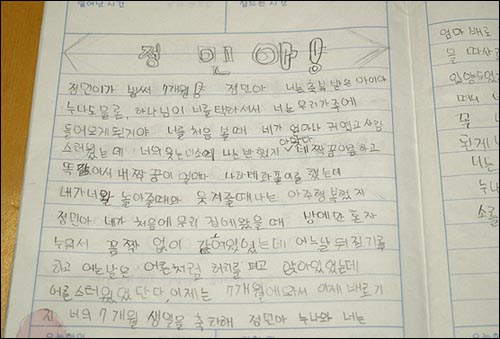 일어난 시간
잠드는 시간
정민아!
정민이가 벌써 7개월 정민아 너는 축복 받은 아이야
누나도 물론, 하나님이 너를 택하셔서 너는 우리가족에
들어오게 된거야 너를 처음 볼 때 네가 얼마나 귀엽고 사랑
스러웠는데 너의 웃는 미소에 나는 반했지 아맞다 네 짝꿍이름하고
똑같아서 내 짝꿍이
내가 너와 놀아줄때와 웃겨줄때 나는 아주 행복했지
정민아 네가 처음에 우리 집에 왔을 때 방에만 혼자
누워서 꼼짝 없이 있었는데 어느날 뒤집기를
하고 어느날은 어른처럼 허리를 펴고 앉아있었는데
어른스러웠었단다, 이제는 7개월에와서 이제 배로기
지 너의 7개월 생일을 축하해 정민아 누나와 너는
엄마 배로
물
꼭
되게
너는
누나
소를